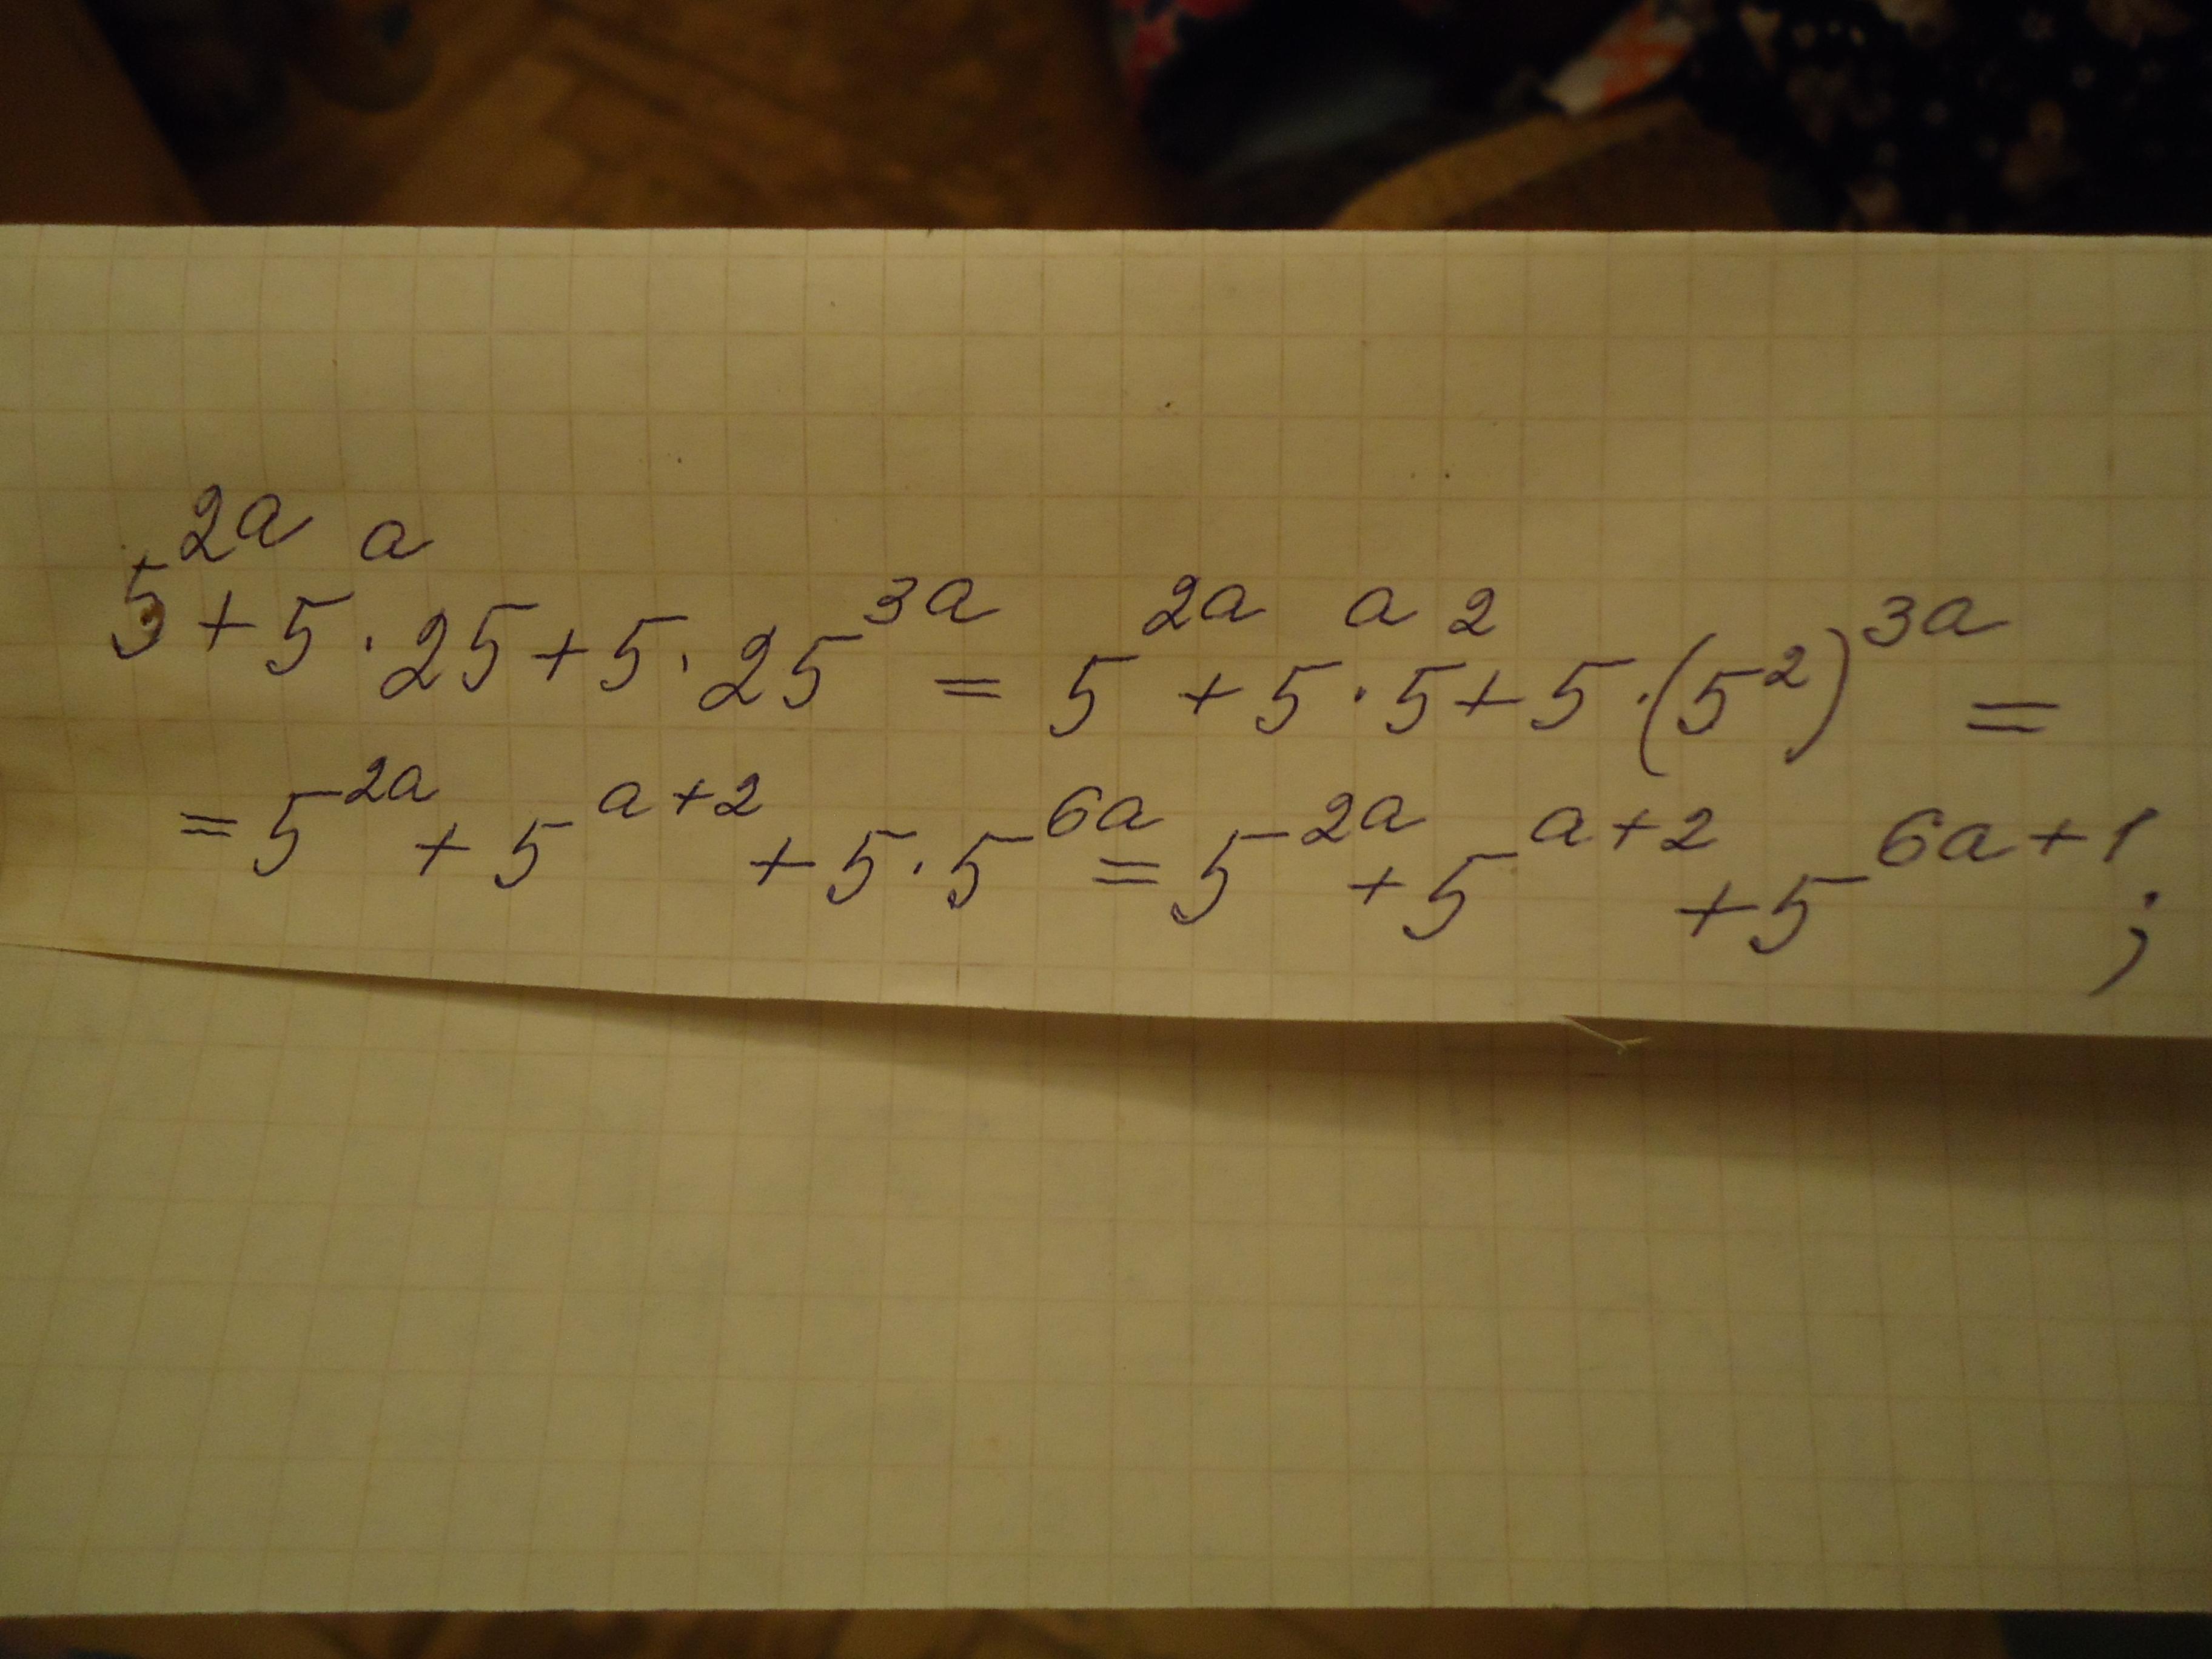 5^{2a} + 5^{a} · 25 + 5 · 25^{3a} = 5^{2a} + 5^{a} · 5^{2} + 5 · (5^{2})^{3a} =
= 5^{2a} + 5^{a+2} + 5 · 5^{6a} = 5^{2a} + 5^{a+2} + 5^{6a+1};